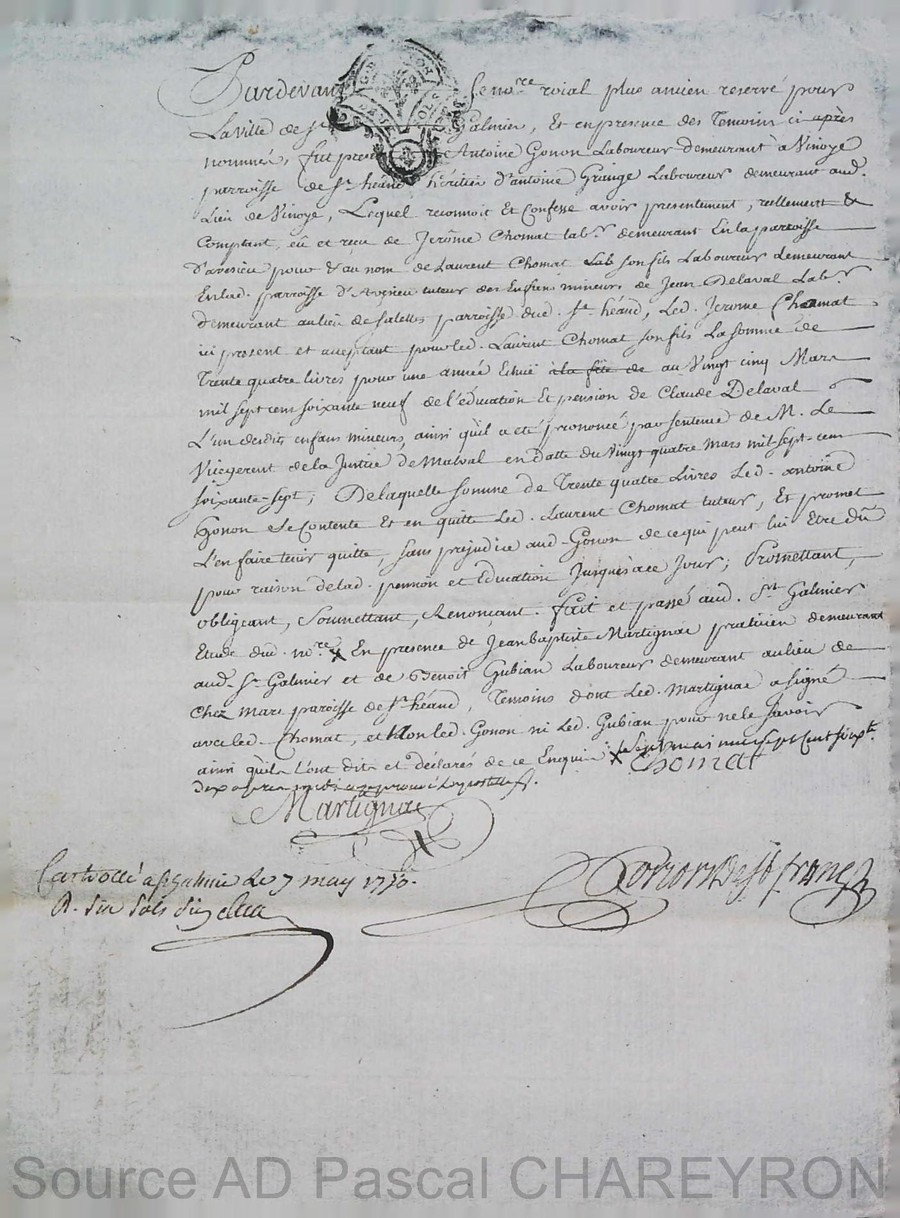 Pardevant le no.re roial plus ancien reservé pour
La ville de st Galmier, Et en presence des Temoins ci après
nommés, fut present Antoine Gonon Laboureur demeurant à Vinoye
parroisse de st héand héritier d'antoine Grange Laboureur demeurant aud.
Lieu de Vinoye, Lequel reconnoit Et Confesse avoir presentement, reellement &
Comptant, eü et reçu de Jerôme Chomat lab.r demeurant En la paroisse
d'aveisieu pour & au nom de Laurent Chomat Lab son fils Laboureur demeurant
En lad. parroisse d'Aveisieu tuteur des Enfans mineurs de Jean Delaval Lab.r
demeurant au lieu de salettes parroisse dud. st héand, Led. Jerome Chomat
ici present et acceptant pour led. Laurent Chomat son fils La somme de
Trente quatre livres pour une année Echüe à la fête de au Vingt cinq Mars
mil sept cent soixante neuf de l'éducation Et pension de Claude Delaval
L'un desdits enfans mineurs, ainsi qu'il a été prononcé par sentence de M. Le
Vicegerent de la Justice de Malval en datte du Vingt quatre mars mil-sept-cent
soixante-sept; De laquelle somme de Trente quatre Livres Led. antoine
Gonon se Contente Et en quitte Led. Laurent Chomat tuteur, Et promet
L'en faire tenir quitte, sans prejudice aud. Gonon de ce qui peut lui Etre dû
pour raison de lad. pension et Education Jusques à ce Jour; Promettant,
obligeant, Soumettant, Renonçant. fait et passé aud. St Galmier
Etude dud. no.re x En presence de Jean baptiste Martignac praticien demeurant
aud. St Galmier et de Benoit Gubian Laboureur demeurant au lieu de
Chez Marc paroisse de st héand, Temoins dont Led. Martignac a signé
avec led. Chomat, et Non led. Gonon ni Led. Gubian pour ne le savoir
ainsi qu'ils L'ont dit et déclaré de ce Enquis x le sept mai mil sept cent soixte
dix apres midi approuvé l'apostille.
Chomat
Martignac
Controllé a St Galmier Le 7 may 1770.
R. six sols six